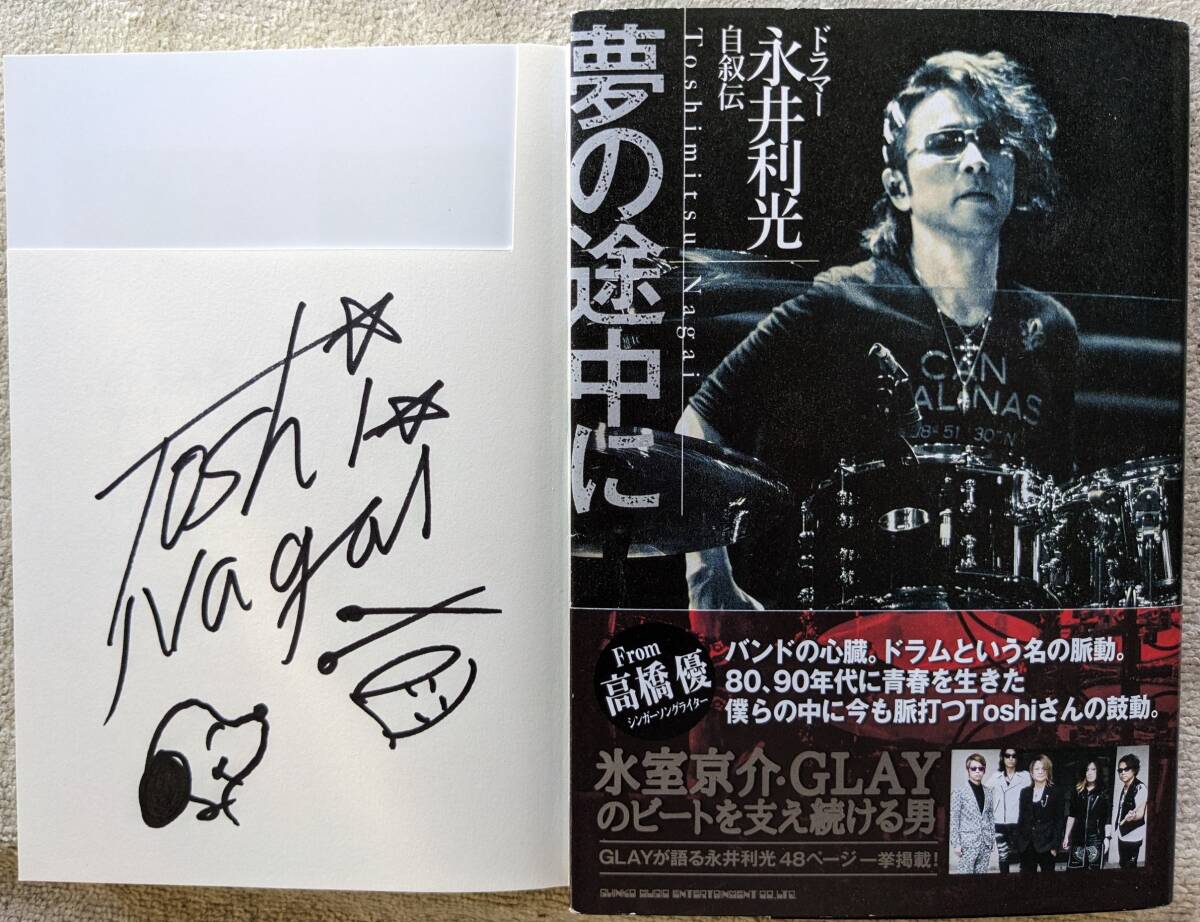 Toshi
Nagai
夢の途中に
ドラマー
永井利光
自叙伝
Toshimitsu Nagai
CAN
ALINAS
38° 51 30"N
From
高橋 優
シンガーソングライター
バンドの心臓。ドラムという名の脈動。
80、90年代に青春を生きた
僕らの中に今も脈打つToshiさんの鼓動。
氷室京介・GLAY
のビートを支え続ける男
GLAYが語る永井利光 48ページ一挙掲載!
SHINKO MUSIC ENTERTAINMENT CO.,LTD.